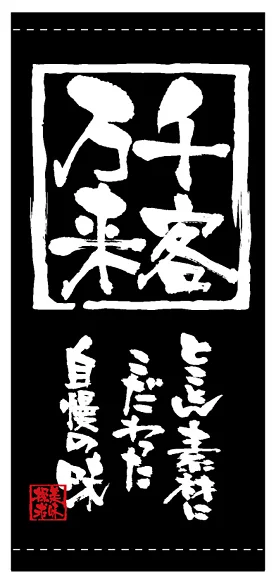 千客
万来
とことん素材に
こだわった
自慢の味